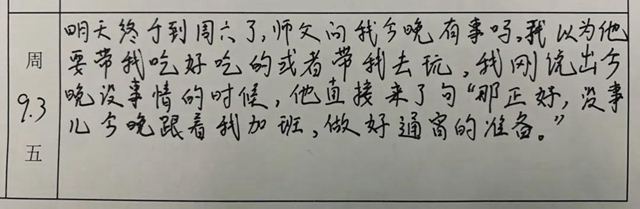 周
9.3
五
明天终于到周六了,师父问我今晚有事吗,我以为他
要带我吃好吃的或者带我去玩,我刚说出今
晚没事情的时候,他直接来了句“那正好,没事
儿今晚跟着我加班,做好通宵的准备。”